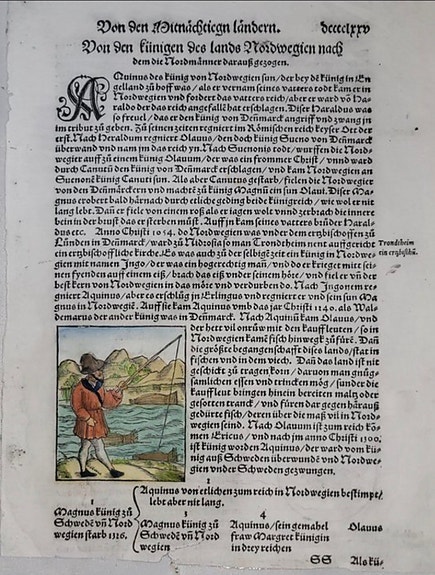 Von den Mitnächtiegn ländern. dcccclxxv
Von den künigen des lands Nordwegien nach
dem die Nordmänner darauß gezogen.
AQuinus des künig von Nordwegien sun/der bey dē künig in En
gelland zů hoff was/ als er vernam seines vatters todt kam er in
Nordwegien vnd fodert das vatters reich/aber er ward vō Ha
raldo der das reich angefallē hat erschlagen. Diser Haraldus was
so freuel/ das er den künig von Denmarck angriff vnd zwang jn
im tribut zů geben. Zů seinen zeiten regniert im Römischen reich keyser Ott der
erst. Nach Heraldum regniert Olauus/ den doch künig Sueno von Denmarck
überwand vnd nam jm das reich yn. Nach Suenonis todt/ wurffen die Nord-
wegier auff zů einem künig Olauum/ der was ein frommer Christ/ vnnd ward
durch Canutū den künig von Denmarck erschlagen/ vnd kam Nordwegien an
Suenonē künig Canuti sun. Als aber Canutus gestarb/ fielen die Nordwegier
von den Denmärckern vnd machtē zů künig Magnū ein sun Olaui. Diser Ma-
gnus erobert bald härnach durch etliche geding beide künigreich/ wie wol er nit
lang lebt. Dan er fiele von einem roß als er jagen wolt vnnd zerbrach die innere
bein in der brust das er sterben můst. Auff jn kam seines vatters brůder Haral-
dus etc. Anno Christi 1054. do Nordwegien was vnder dem ertzbischoffen zů
Lunden in Denmarck/ ward zů Nidrosia so man Trondtheim nent auffgericht
ein ertzbischofliche kirch. Es was auch zů der selbigē zeit ein künig in Nordwe-
gien mit namen Ingo/ der was ein hogerechtig man/ vnd do er krieget mitt sei-
nen fyenden auff einem eiß/ brach das eiß vnder seinem hör/ vnd fiel er vn der
best kern von Nordwegien in das möre vnd verdurben do. Nach Ingonem re-
gniert Aquinus/ aber es erschlůg jn Erlingus vnd regniert er vnd sein sun Ma
gnus in Nordwegiē. Auff sie kam Aquinus vmb das jar Christi 1140. als Wal-
demarus der ander künig was in Denmarck. Nach Aquinū kam Olauus/ vnd
Trondtheim
ein ertzbischū.
der hett vil vnrůw mit den kauffleuten/ so in
Nordwegien kamē fisch hinweg zů fürē. Dan
die größte begangenschafft dises lands/ stat in
fischen vnd in dem viech. Dan das land ist nit
geschickt zů tragen korn/ daruon man gnůg-
samlichen essen vnd trincken mög/ sunder die
kauffleut bringen hinein bereiten maltz oder
gesotten tranck/ vnd füren dar gegen härauß
gedürte fisch/ deren über die maß vil in Nord
wegien seind. Nach Olauum ist zum reich kō-
men Ericus/ vnd nach jm anno Christi 1300.
ist künig worden Aquinus/ der ward vom kü-
nig auß Schweden überwundē vnd Nordwe-
gien vnder Schweden gezwungen.
1
Aquinus von etlichen zum reich in Nordwegien bestimpt/
lebt aber nit lang.
1 3 4
Magnus künig zů
Schwedē vn Nord
wegien starb 1326.
Magnus künig zů
Schwedē vn Nord
wegien
Aquinus/ sein gemahel
fraw Margret künigin
in drey reichen
Olauus
SS Als kü-